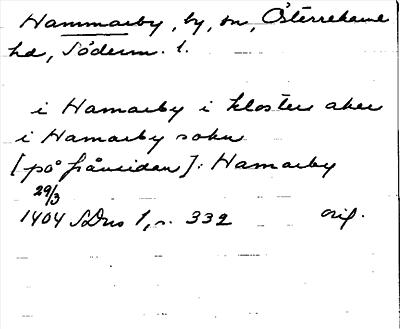 Hammarby, by, sn, Österrekarne
hd, Söderm. l.
i Hamarby i kloster aker
i Hamarby sokn
[på frånsidan]: Hamarby
29/3
1404 SDns 1, s. 332 orig.